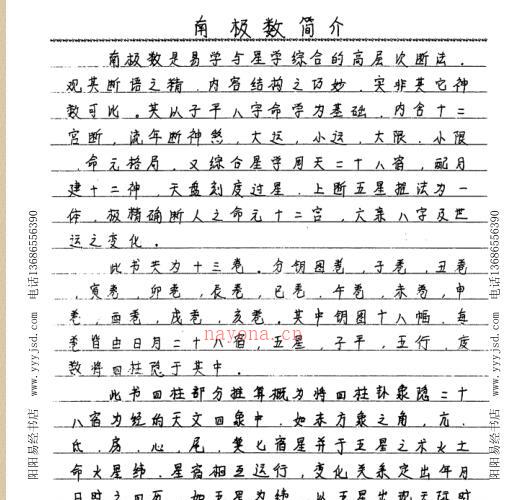 南极数简介
南极数是易学与星学综合的高层次断法.
观其断语之精.内容结构之巧妙.实非其它神
数可比。其从子平八字命学为基础.内含十二
宫断,流年断神煞,大运,小运,大限.小限
,命元格局.又综合星学周天二十八宿,配月
建十二神,天盘刻度过星.上断五星推法为一
体.极精确断人之命元十二宫,六亲八字及世
运之变化。
此书共为十三卷.分钥图卷,子卷,丑卷
,寅卷,卯卷,辰卷,巳卷.午卷.未卷,申
卷,酉卷,戌卷,亥卷。其中钥图十八幅.每
卷皆由日月二十八宿,五星,子平,五行,度
数将四柱隐于其中.
此书四柱部分推算概为将四柱卦象隐二十
八宿为经的天文四象中.如东方象之角,亢,
氐,房,心,尾,箕七宿星并于五星之木火土
命火星纬.星宿相互运行,变化关系定出年月
日时之四瓦.如五星为纬.以五星出现在辰时
nayona.cn
阳阳易经书店 www.yyyjsd.com 电话13686556390
阳阳易经书店 www.yyyjsd.com 电话13686556390